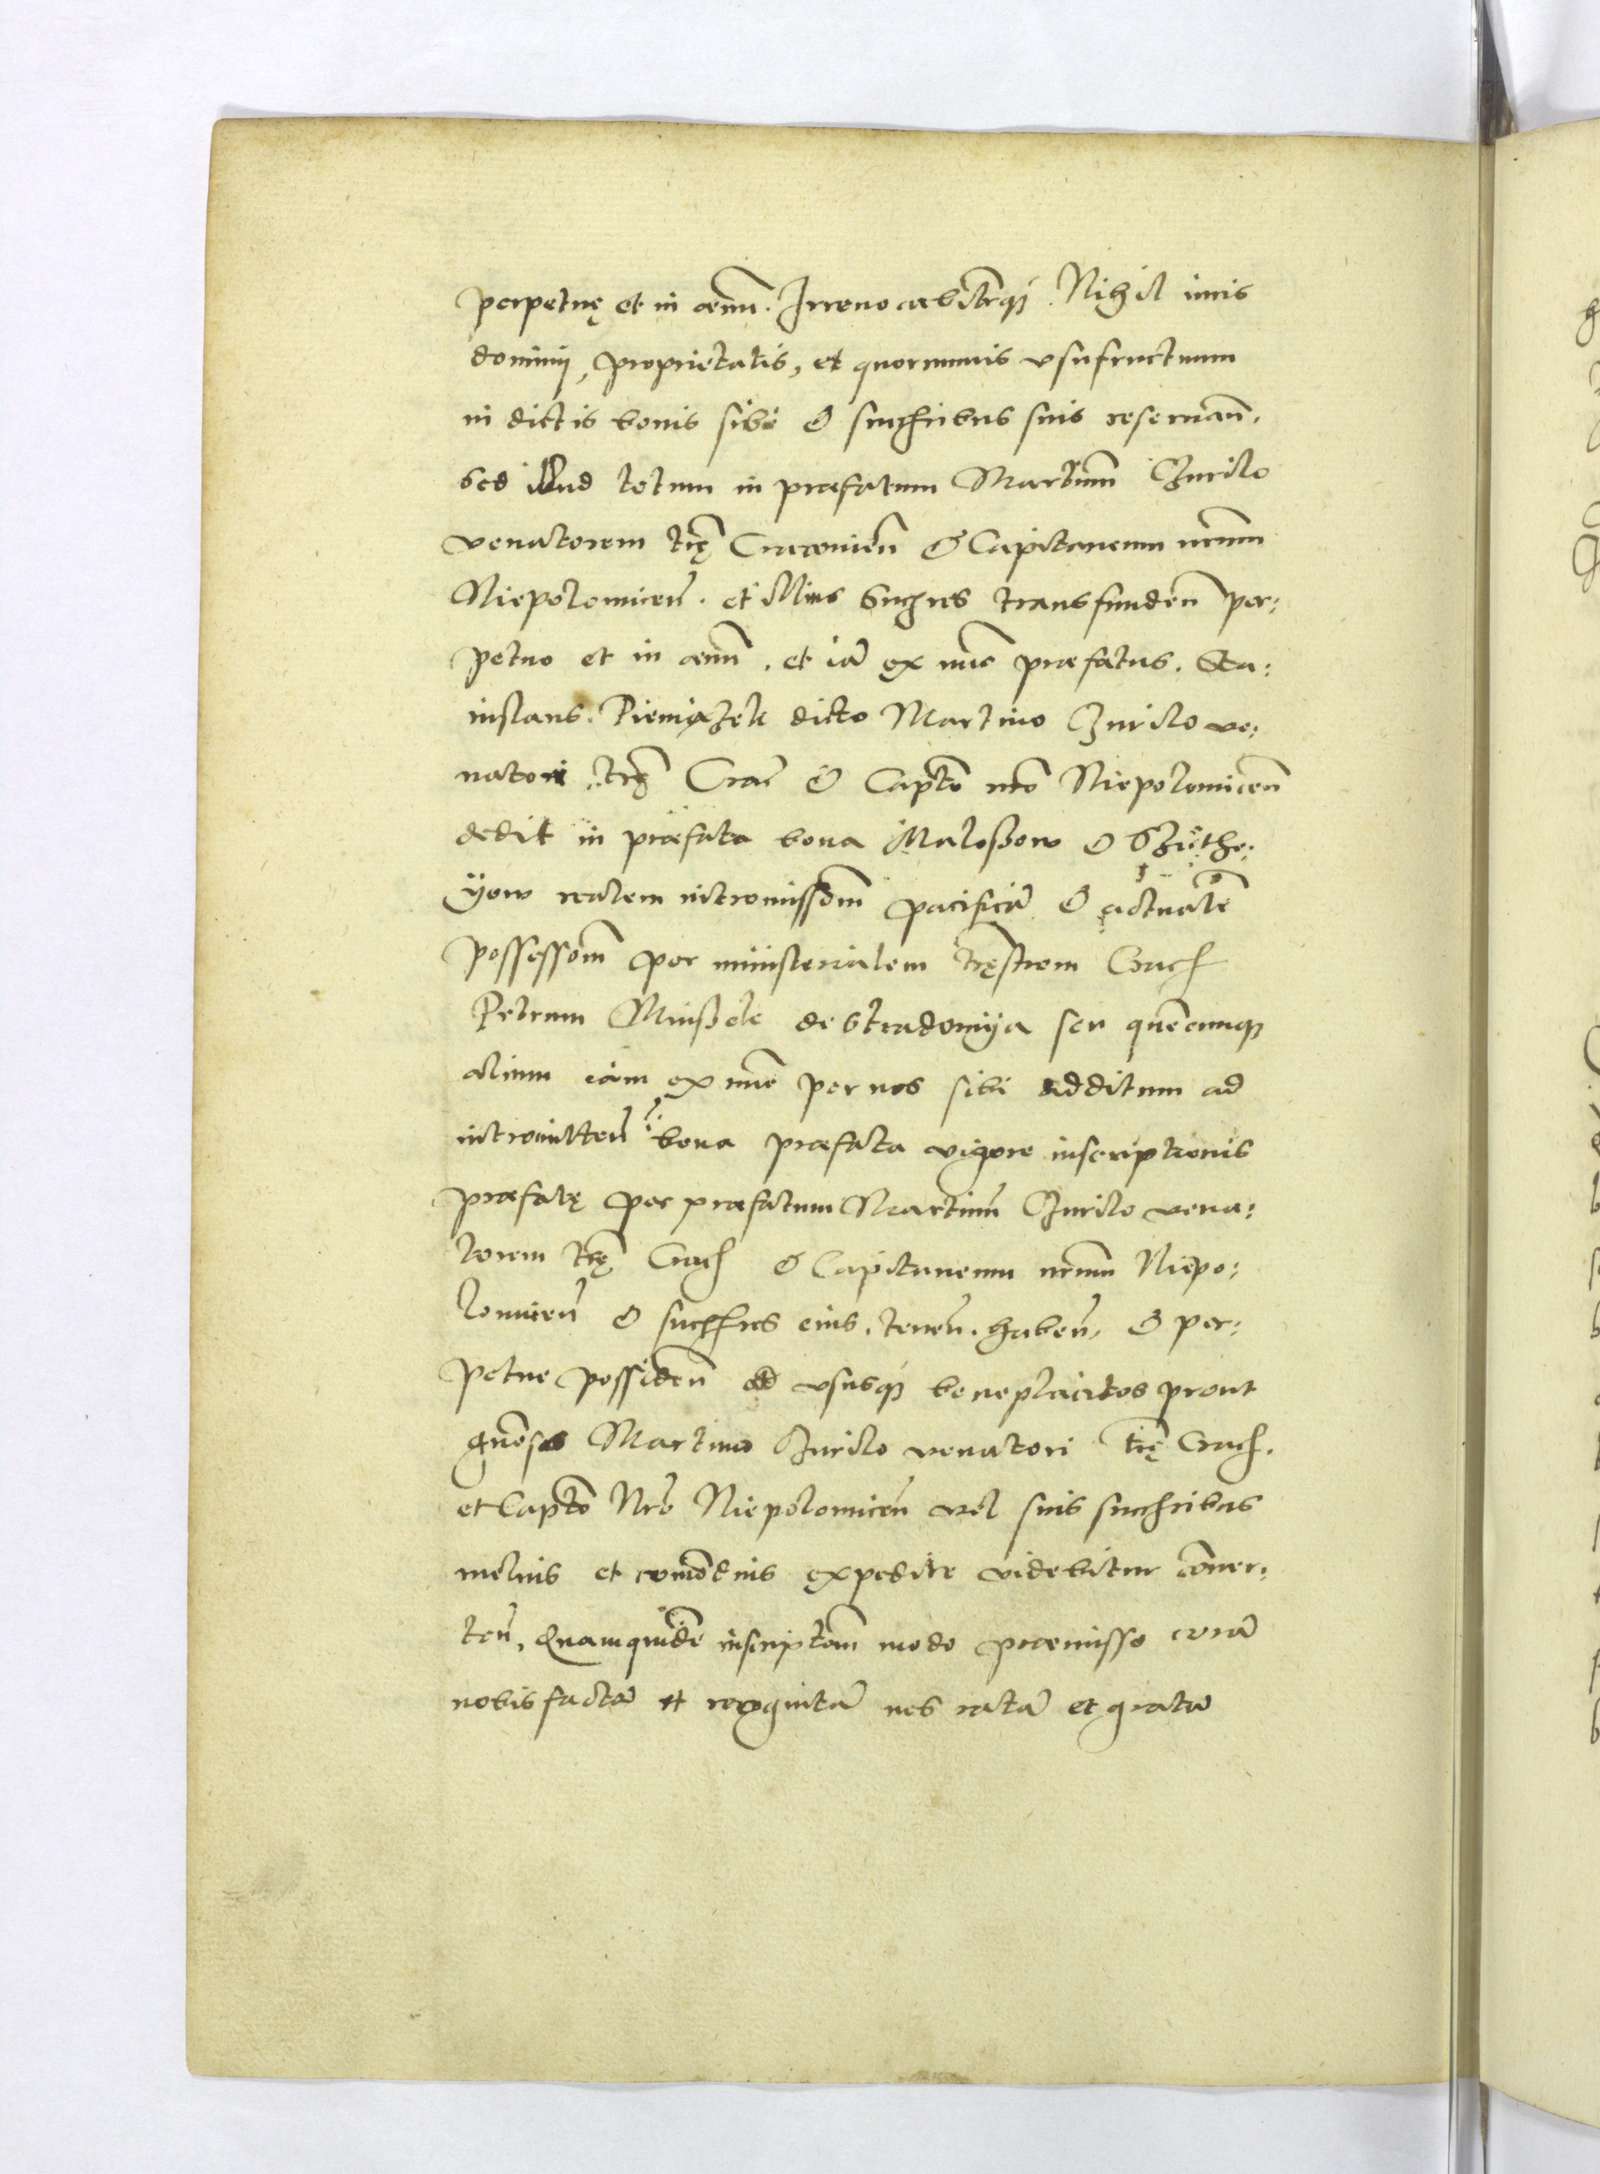 perpetuę et in aeuu͂. Irreuocabiliterq́ꝫ. Nihil iuris
dominij, proprietatis, et quorumuis vsufructuum
in dictis bonis sibi & succ͂ribus suis reseruan͂.
sed illud totum in praefatum Martinu͂ Zurilo
venatorem trę͂ Cracouien͂ & Capitaneum nr͂um
Niepolomicen͂. et illius Succ͂res transfunden͂ per:
petuo et in aeuu͂. et ia͂ ex nu͂c praefatus. Sta:
instans. Pieniążek dicto Martino Zurilo ve:
natori trę͂ Crac͂ & Capt͂o nr͂o Niepolomicen͂
dedit in praefata bona Maloßow &
yow realem intromissio͂m pacifica͂ & actuale͂
possessio͂m per ministerialem trę͂strem Crac͂
Petrum de Stradomija seu que͂cunqꝫ
alium iam ex nu͂c per nos sibi additum ad
intromitten͂ bona praefata vigore inscriptionis
praefatę per praefatum Martinu͂ Zurilo vena:
torem trę͂ Crac͂ & Capitaneum nr͂um Niepo:
lomicen͂ & succ͂res eius. tenen͂. haben͂. & per:
petue possiden͂ ad vsusq́ꝫ beneplacitos prout
gn͂oso Martino Zurilo venatori trę͂ Crac͂.
et Capt͂o Nr͂o Niepolomicen͂ vel suis succ͂ribus
melius et com͂odius expedire videbitur co͂uer:
ten͂. Quamquide͂ inscriptio͂m modo praemisso cora͂
nobis facta͂ et recognita͂ nos rata͂ et grata͂